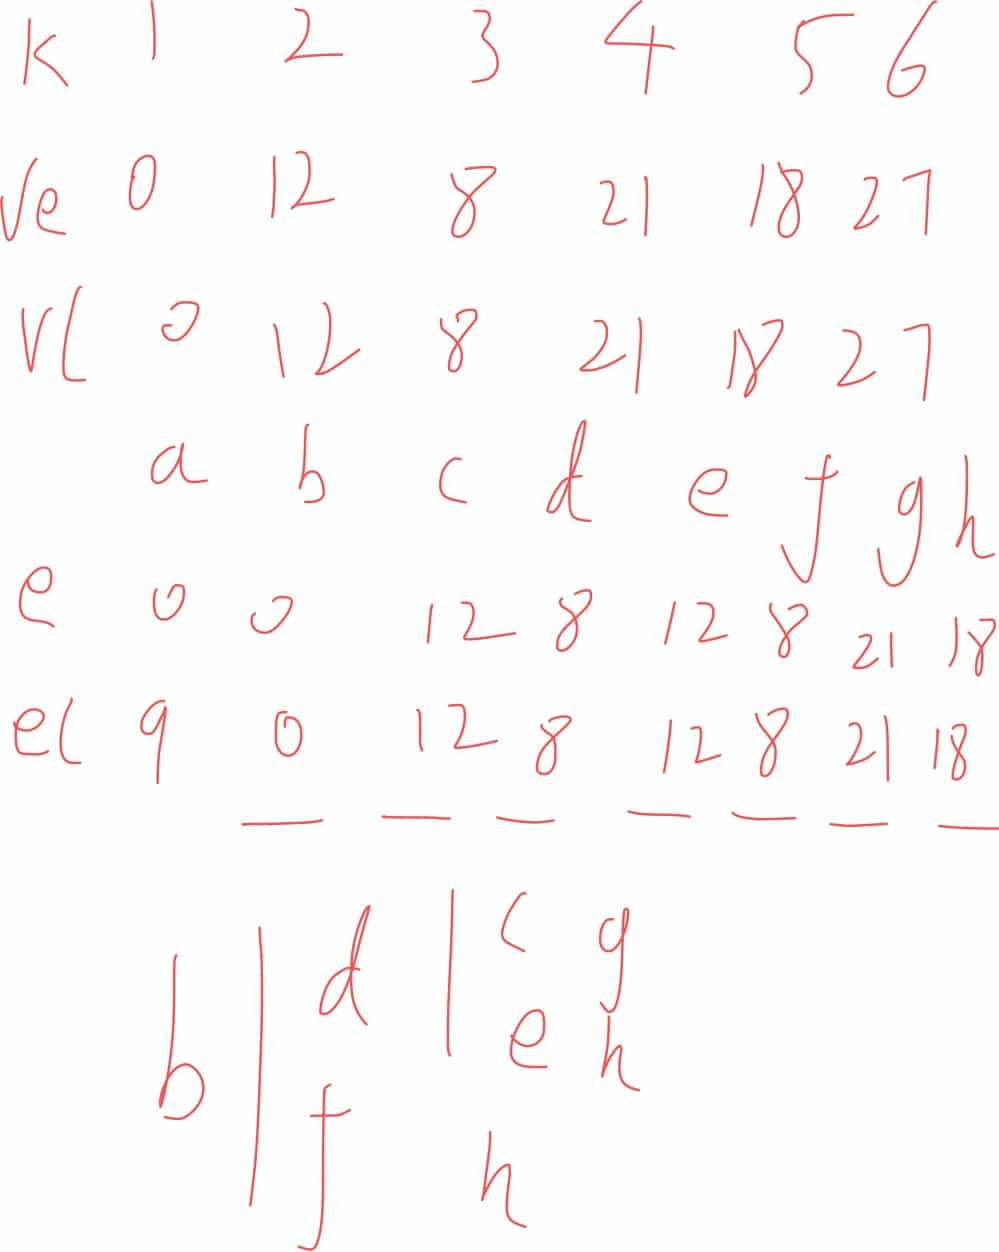 K 1 2 3 4 5 6
Ve 0 12 8 21 18 27
Vl 0 12 8 21 18 27
a b c d e f g h
e 0 0 12 8 12 8 21 18
el 9 0 12 8 12 8 21 18
b | d f | c e h g h